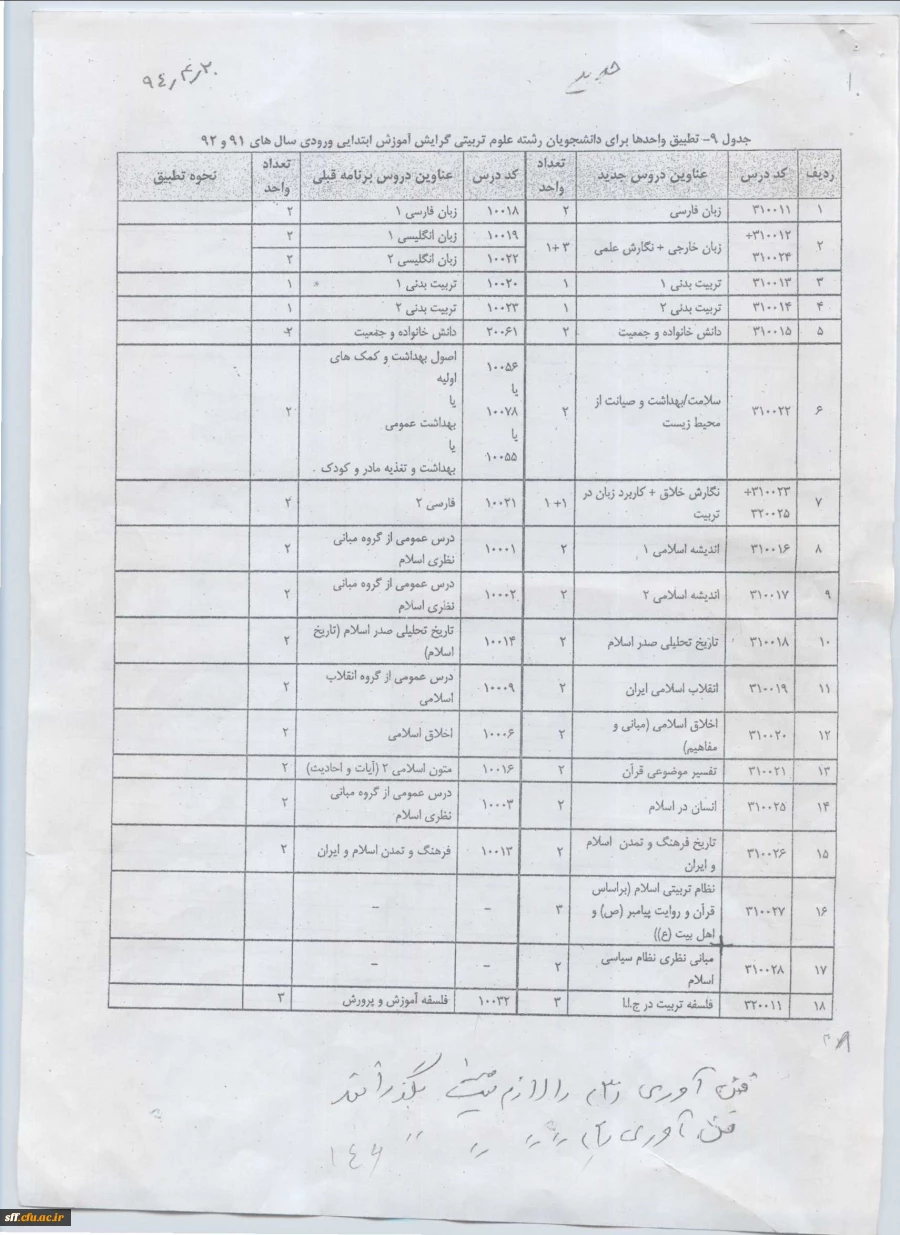 ۹۴٫۴٫۲۰
جدید
۱.
جدول ۹- تطبیق واحدها برای دانشجویان رشته علوم تربیتی گرایش آموزش ابتدایی ورودی سال های ۹۱ و ۹۲
ردیف کد درس عناوین دروس جدید تعداد واحد کد درس عناوین دروس برنامه قبلی تعداد واحد نحوه تطبیق
۱ ۳۱۰۰۱۱ زبان فارسی ۲ ۱۰۰۱۸ زبان فارسی ۱ ۲
۲ ۳۱۰۰۱۲+ ۳۱۰۰۲۴ زبان خارجی + نگارش علمی ۳ +۱ ۱۰۰۱۹ زبان انگلیسی ۱ ۲
۱۰۰۲۲ زبان انگلیسی ۲ ۲
۳ ۳۱۰۰۱۳ تربیت بدنی ۱ ۱ ۱۰۰۲۰ تربیت بدنی ۱ ۱
۴ ۳۱۰۰۱۴ تربیت بدنی ۲ ۱ ۱۰۰۲۳ تربیت بدنی ۲ ۱
۵ ۳۱۰۰۱۵ دانش خانواده و جمعیت ۲ ۲۰۰۶۱ دانش خانواده و جمعیت ۲
۶ ۳۱۰۰۲۲ سلامت/بهداشت و صیانت از محیط زیست ۲ ۱۰۰۵۶ یا ۱۰۰۷۸ یا ۱۰۰۵۵ اصول بهداشت و کمک های اولیه یا بهداشت عمومی یا بهداشت و تغذیه مادر و کودک ۲
۷ ۳۱۰۰۲۳+ ۳۲۰۰۲۵ نگارش خلاق + کاربرد زبان در تربیت ۱+ ۱ ۱۰۰۲۱ فارسی ۲ ۲
۸ ۳۱۰۰۱۶ اندیشه اسلامی ۱ ۲ ۱۰۰۰۱ درس عمومی از گروه مبانی نظری اسلام ۲
۹ ۳۱۰۰۱۷ اندیشه اسلامی ۲ ۲ ۱۰۰۰۲ درس عمومی از گروه مبانی نظری اسلام ۲
۱۰ ۳۱۰۰۱۸ تاریخ تحلیلی صدر اسلام ۲ ۱۰۰۱۴ تاریخ تحلیلی صدر اسلام (تاریخ اسلام) ۲
۱۱ ۳۱۰۰۱۹ انقلاب اسلامی ایران ۲ ۱۰۰۰۹ درس عمومی از گروه انقلاب اسلامی ۲
۱۲ ۳۱۰۰۲۰ اخلاق اسلامی (مبانی و مفاهیم) ۲ ۱۰۰۰۶ اخلاق اسلامی ۲
۱۳ ۳۱۰۰۲۱ تفسیر موضوعی قرآن ۲ ۱۰۰۱۶ متون اسلامی ۲ (آیات و احادیث) ۲
۱۴ ۳۱۰۰۲۵ انسان در اسلام ۲ ۱۰۰۰۳ درس عمومی از گروه مبانی نظری اسلام ۲
۱۵ ۳۱۰۰۲۶ تاریخ فرهنگ و تمدن اسلام و ایران ۲ ۱۰۰۱۳ فرهنگ و تمدن اسلام و ایران ۲
۱۶ ۳۱۰۰۲۷ نظام تربیتی اسلام (براساس قرآن و روایت پیامبر (ص) و اهل بیت (ع)) ۳ - -
۱۷ ۳۱۰۰۲۸ مبانی نظری نظام سیاسی اسلام ۲ - -
۱۸ ۳۲۰۰۱۱ فلسفه تربیت در ج.ا.ا ۳ ۱۰۰۳۲ فلسفه آموزش و پرورش ۳
فن آوری را لازم نیست بگذرانند
فن آوری ۱۴۶
sff.cfu.ac.ir